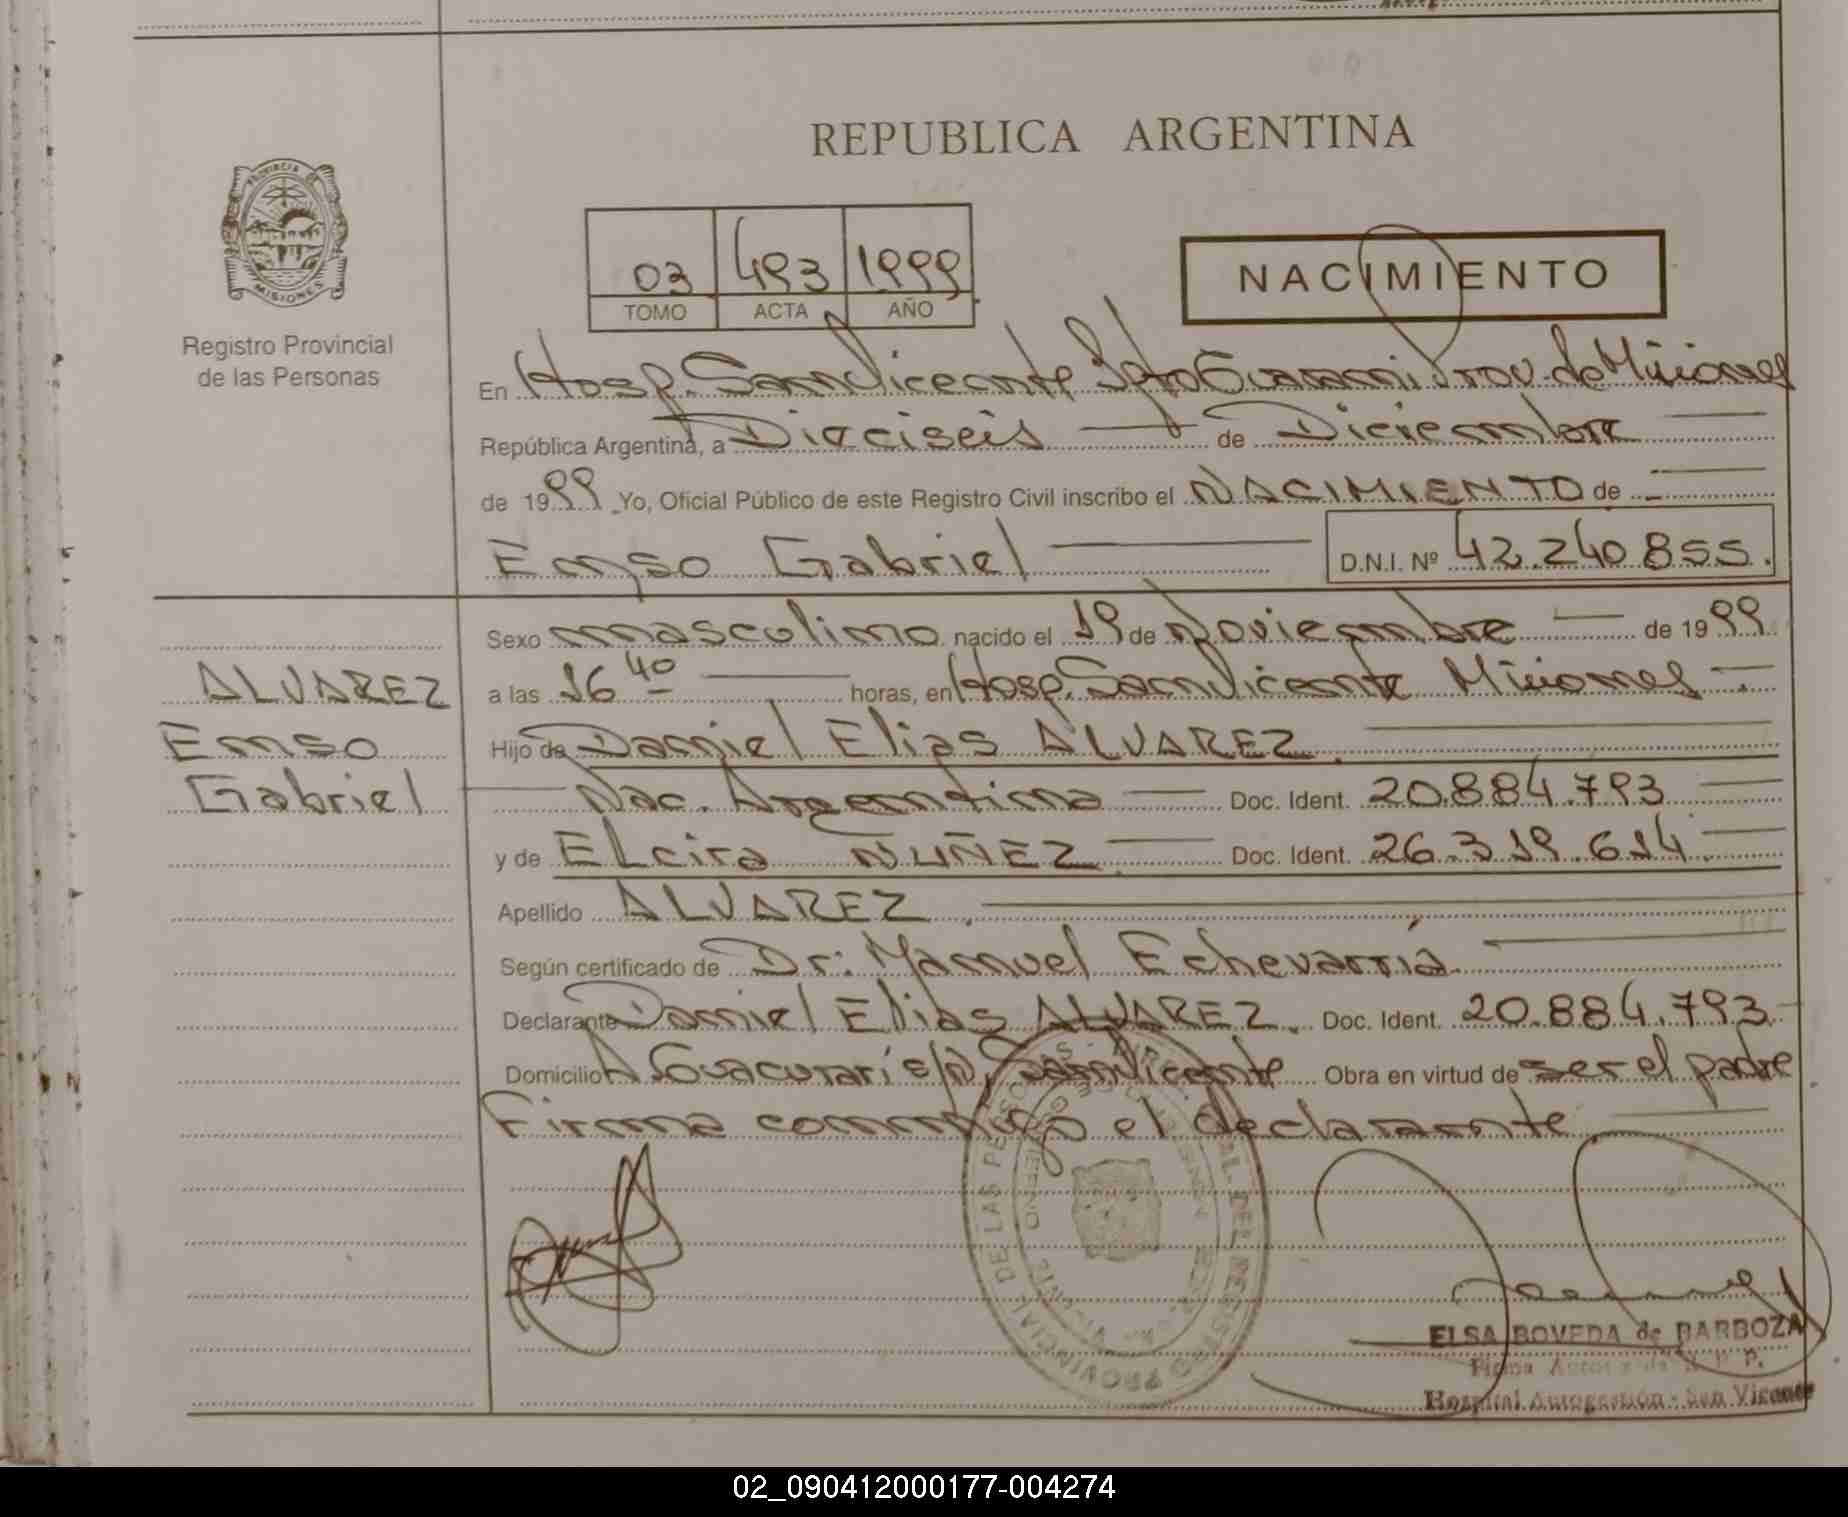 REPUBLICA ARGENTINA
PROVINCIA DE
MISIONES
Registro Provincial
de las Personas
03 493 1999
TOMO ACTA AÑO
NACIMIENTO
En Hosp. San Vicente Dpto Guarani Prov. de Misiones
República Argentina, a Dieciseis de Diciembre
de 1999 Yo, Oficial Público de este Registro Civil inscribo el NACIMIENTO de
Enso Gabriel D.N.I. Nº 42.240.855.
Sexo masculino nacido el 19 de Noviembre de 1999
a las 16 40 horas, en Hosp. San Vicente Misiones
Hijo de Daniel Elias ALVAREZ.
Nac. Argentina Doc. Ident. 20.884.793
y de ELcira NUÑEZ Doc. Ident. 26.319.614
Apellido ALVAREZ
Según certificado de Dr: Manuel Echevarría
Declarante Daniel Elias ALVAREZ. Doc. Ident. 20.884.793
Domicilio A Guacurari s/n, San Vicente Obra en virtud de ser el padre
Firma conmigo el declarante
ALVAREZ
Enso
Gabriel
PROVINCIAL DE LAS PERSONAS
ELSA BOVEDA de BARBOZA
Hospital Autogestión - San Vicente
02_090412000177-004274